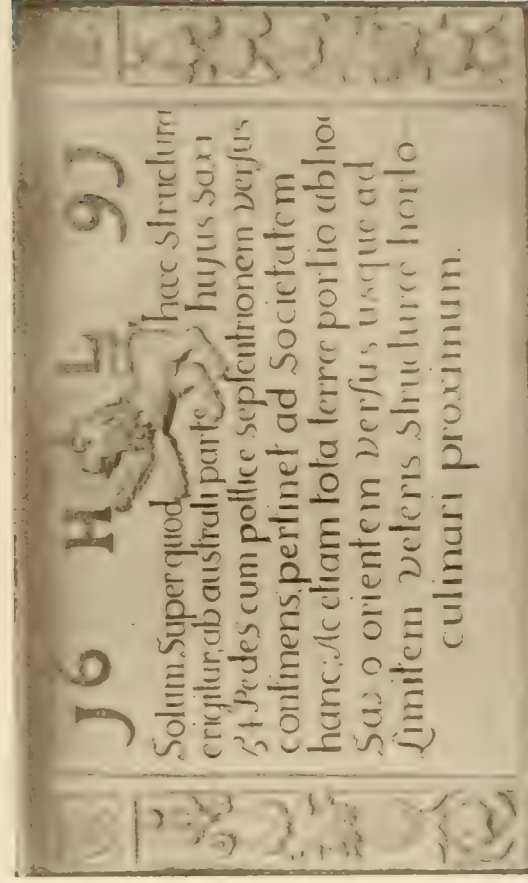 J6 H L 9J
Solum Super quod hæc structura
erigitur, ab australi parte hujus Saxi
51 Pedes cum pollice septentrionem versus
continens, pertinet ad Societatem
hanc: Ac etiam tota terræ portio ab hoc
Saxo orientem versus usque ad
Limitem veteris Structuræ horto
culinari proximum.